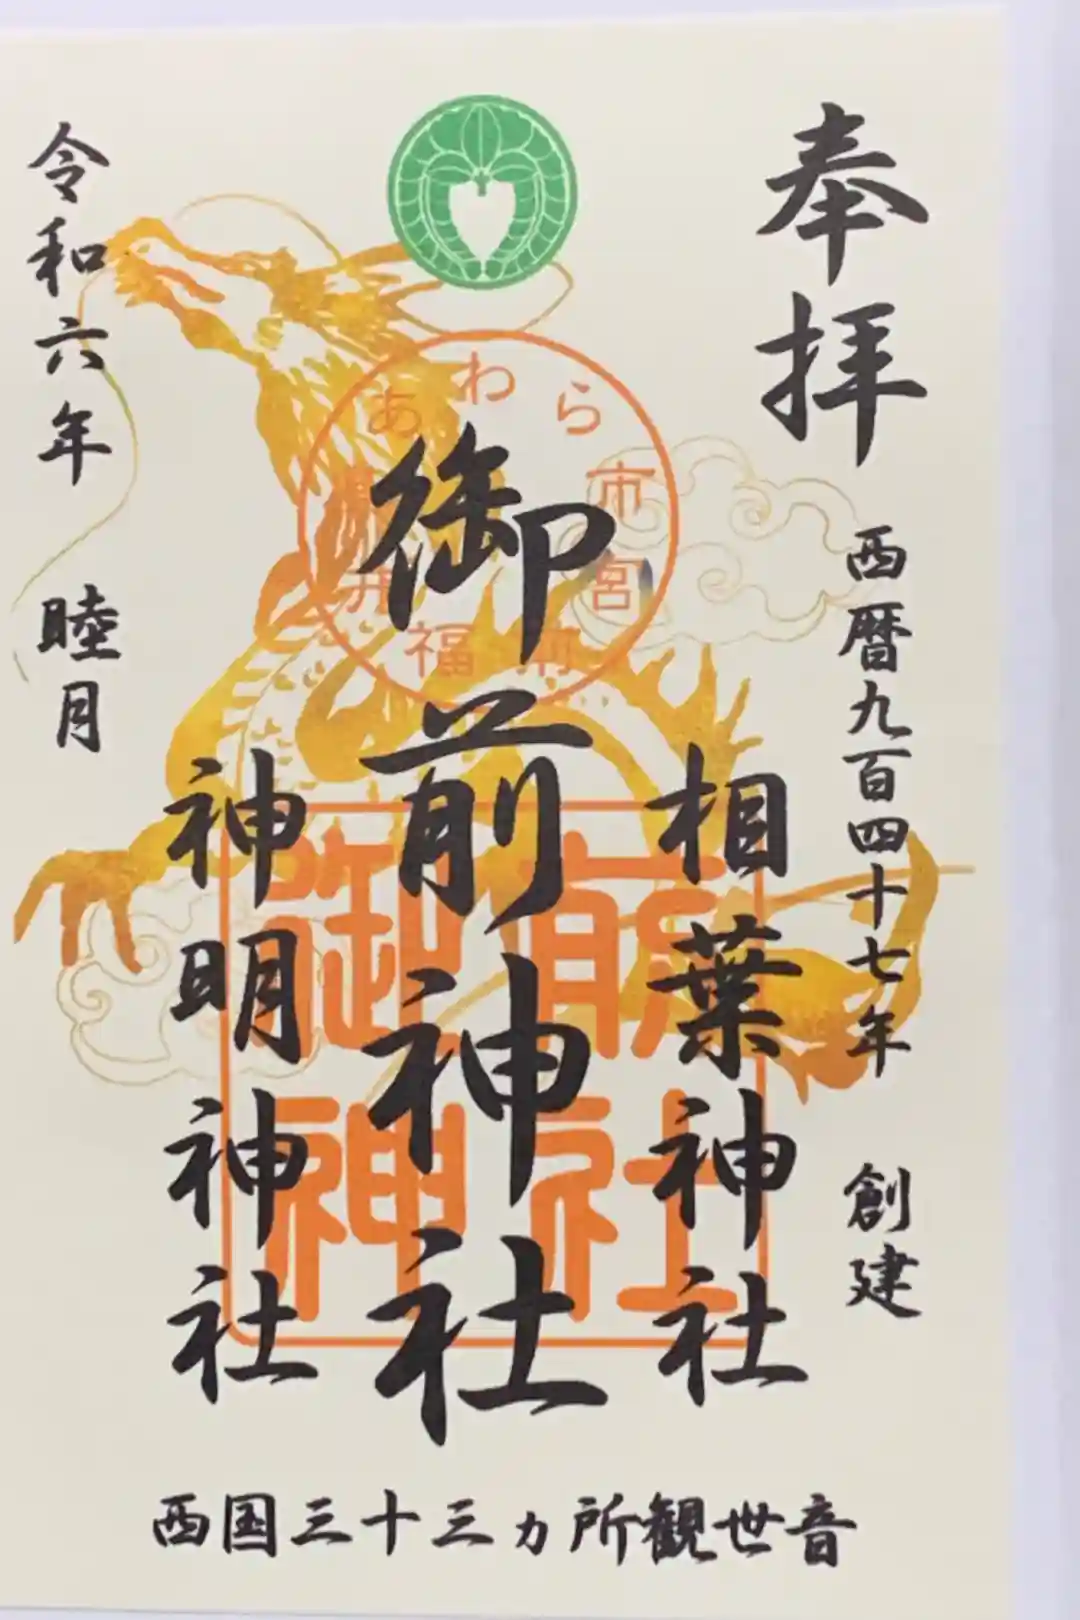 奉拝
西暦九百四十七年 創建
相葉神社
御前神社
神明神社
令和六年 睦月
あわら市宮前
福井県
御前神社
西国三十三ヵ所観世音